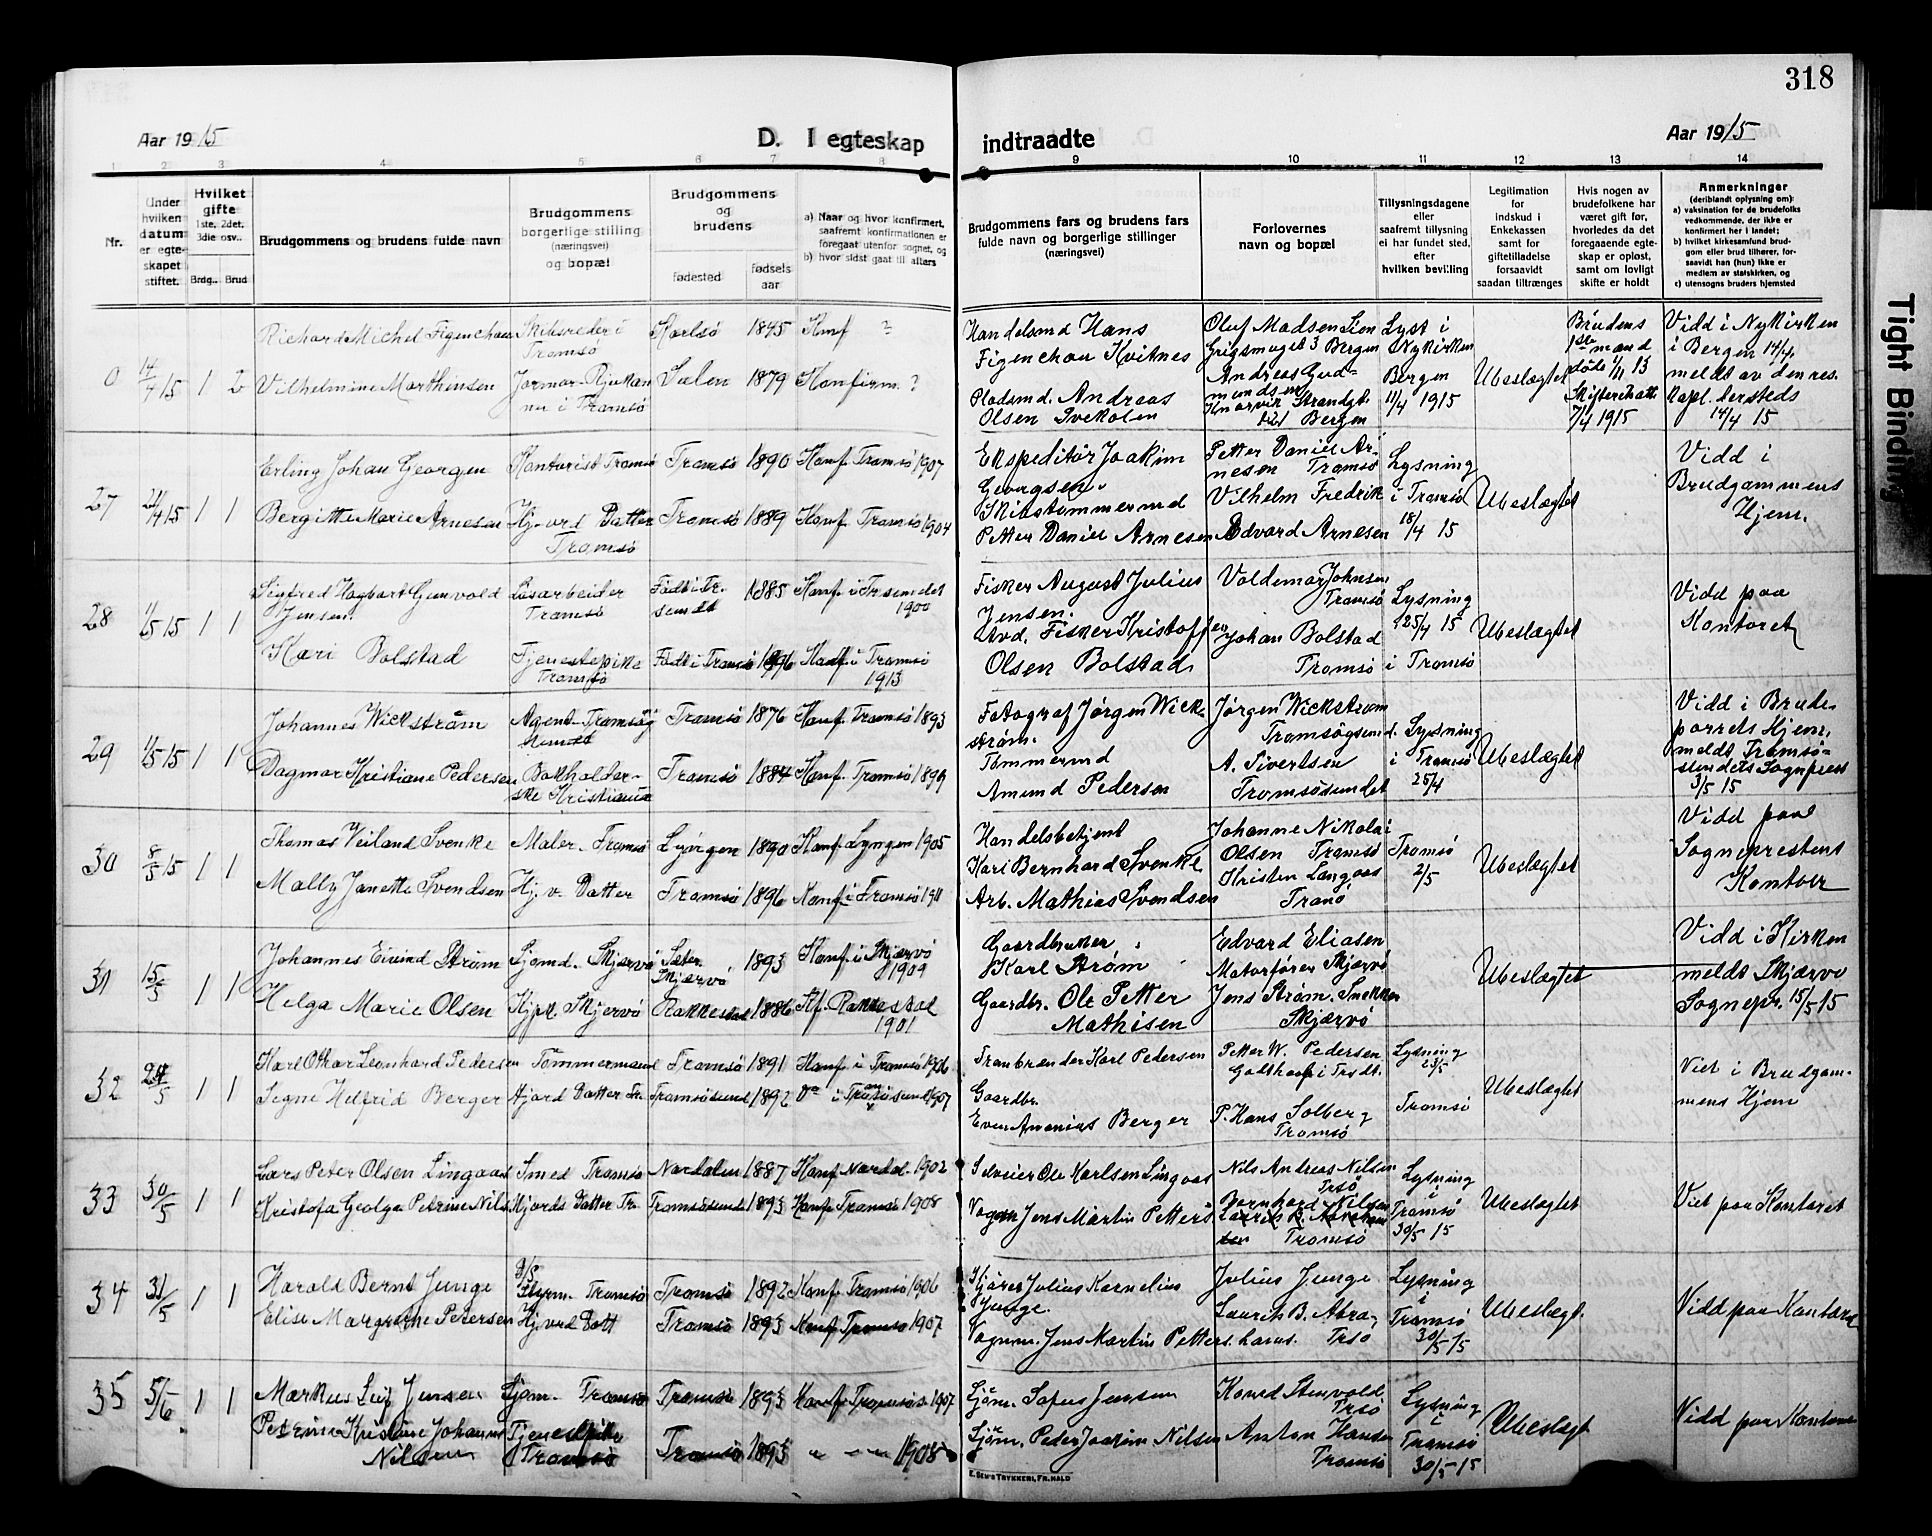 318
Aar 1915
D. I egteskap indtraadte
Aar 1915
1 2 3 4 5 6 7 8 9 10 11 12 13 14
Nr.
Under
hvilken
datum
er egte-
skapet
stiftet.
Hvilket
gifte
1ste, 2det,
3die osv..
Brdg.. Brud
Brudgommens og brudens fulde navn
Brudgommens
borgerlige stilling
(næringsvei)
og bopæl
Brudgommens
og
brudens
fødested
fødsels
aar
a) Naar og hvor konfirmert,
saafremt konfirmationen er
foregaat utenfor sognet, og
b) hvor sidst gaat til alters
Brudgommens fars og brudens fars
fulde navn og borgerlige stillinger
(næringsvei)
Forlovernes
navn og bopæl
Tillysningsdagene
eller
saafremt tillysning
ei har fundet sted,
efter
hvilken bevilling
Legitimation
for
indskud i
Enkekassen
samt for
giftetilladelse
forsaavidt
saadan tiltrænges
Hvis nogen av
brudefolkene har
været gift før,
hvorledes da det
foregaaende egte-
skap er opløst,
samt om lovligt
skifte er holdt
Anmerkninger
(deriblandt oplysning om):
a) vaksination for de brudefolks
vedkommende, der ikke er
konfirmert her i landet;
b) hvilket kirkesamfund brud-
gom eller brud tilhører, for-
saavidt han (hun) ikke er
medlem av statskirken, og
c) utensogns bruders hjemsted
0 14/4 15 1 2
Richard Michel Figenchau
Vilhelmine Marthinsen
Skibsreder i
Tromsö
Karlsö 1845 Konf ?
Salen 1879 Konfirm. ?
ner i Tromsö
Handelsmd Hans
Figenchau Kvitnes
Pladsmd. Andreas
Olsen Svekolen
Oluf Madsen Lien
Bergen
Andreas Gud-
mundsen
Bergen
Lyst i
Nykirken
Bergen
11/4 1915
Ubeslægtet
Brudens
1ste mand
døde 1/11 13
7/4 1915
Vidd i Nykirken
i Bergen 14/4,
meldt av den res.
Kapl. dersteds
14/4 15
27 21/4 15 1 1
Erling Johan Georgen
Bergitte Marie Arnesen
Kontorist Tromsö
Hj.vrd Datter
Tromsö
Tromsö 1890 Konf. Tromsö 1907
Tromsö 1889 Konf. Tromsö 1904
Ekspeditör Joakim
Georgsen
Skibstømmermd
Petter Daniel Arnesen
Petter Daniel Ar-
nesen Tromsö
Vilhelm Fredrik
Edvard Arnesen
Lysning
i Tromsö
18/4 15
Ubeslægtet
Vidd i
Brudgommens
Hjem.
28 1/5 15 1 1
Sigfred Hagbart Gunvold
Jensen.
Kari Bolstad
Løsarbeider
Tromsö
Tjenestepike
Tromsö
Födt i Tr.
sundt 1885 Konf. i Trsundet
1900
Födt i Tromsö 1896 Konf. i Tromsö
1913
Fisker August Julius
Jensen.
Avd. Fisker Kristoffer
Olsen Bolstad
Valdemar Johnsen
Tromsö
Johan Bolstad
Tromsö
Lysning
25/4 15
i Tromsö
Ubeslægtet
Vidd paa
Kontoret
29 1/5 15 1 1
Johannes Wickström
Dagmar Kristiane Pedersen
Agent Tromsöy
sundt
Bokholder-
ske Kristiania
Tromsö 1876 Konf. Tromsö 1893
Tromsö 1884 Konf. Tromsö 1899
Fotograf Jørgen Wick-
ström.
Tömmermd
Amund Pedersen
Jørgen Wickstrøm
Tromsøysund.
A. Sivertsen
Tromsösundet
Lysning
i Tromsö
25/4
Ubeslægtet
Vidd i Brude-
parrets Hjem,
meldt Tromsö-
sundets Sogneprest
3/5 15
30 8/5 15 1 1
Thomas Veiland Svenke
Mally Janette Svendsen
Maler. Tromsö
Hj. v. Datter
Lyngen 1890 Konf. Lyngen 1905
Tromsö 1896 Konf. i Tromsö 1911
Handelsbetjent
Karl Bernhard Svenke
Arb. Mathias Svendsen
Johanne Nikolai
Olsen Tromsö
Kristen Langaas
Tranö
Tromsö
2/5
Ubeslægtet
Vidd paa
Sogneprestens
Kontor
31 15/5 1 1
Johannes Eivind Strøm
Helga Marie Olsen
Sjømd. Skjærvö
Hjpk. Skjervö
Skjærvö 1893 Konf. i Skjærvö
1909
Rakkestad 1886 Kf. Rakkestad
1901
Gaardbruker
Karl Strøm
Gaardbr. Ole Petter
Mathisen
Edvard Eliasen
Motorfører Skjærvö
Jens Strøm. Snekker
Skjærvö
Ubeslægtet
Vidd i Kirken
meldt Skjærvö
Sognepr. 15/5 15
32 24/5 1 1
Karl Othar Leonhard Pedersen
Signe Helfrid Berger
Tömmermand
Hjard Datter Tr.
Tromsö 1891 Konf. i Tromsö 1906
Tromsösund 1892 Do i Tromsösund 1907
Tranbrender Karl Pedersen
Gaardbr.
Even Ananias Berger
Petter W. Pedersen
P. Hans Solberg
Tromsö
Lysning
23/5
Tromsö
Ubeslægtet
Viet i Brudgom-
mens Hjem
33 30/5 1 1
Lars Peter Olsen Lingaas
Kristofa Geolga Petrine Nils
Smed Tromsö
Hjords Datter Tr.
Nordalen 1887 Konf. Nordal. 1902
Tromsösund 1893 Konf. Tromsö 1908
Selveier Ole Karlsen Lingaas
Vognm Jens Martin Petters
Nils Andreas Nilsen
Trsö
Bernhard Nilsen
Tromsö
Lysning
i
Tromsö
30/5 15
Ubeslægtet
Viet paa Kontoret
34 31/5 1 1
Harald Bernt Junge
Elise Margrethe Petersen
Styrm. Tromsö
Hj. vrd Dott
Tromsö 1892 Konf. Tromsö 1906
Tromsö 1893 Konf. Tromsö 1907
Julius Kornelius
Junge.
Vognm. Jens Martin Petters.
Julius Junge
Laurits B. Abra-
hams. Trsö
Lysning
i
Tromsö
30/5 15
Ubeslægt.
Vidd paa Kontoret
35 5/6 1 1
Markus Leif Jensen
Petrine Kristine Johanne
Nilsen
Sjöm. Tromsö
Tjenestpike
Tromsö
Tromsö 1893 Konf. Tromsö 1907
Tromsö 1893 " " " 1908
Sjöm. Sofus Jensen
Sjöm. Peder Joakim Nilsen
Konrd Stenvold
Trsö
Anton Hansen
Tromsö
Lysning
i
Tromsö
30/5 15
Ubeslægt
Vidd paa Kontoret
E. SEM'S TRYKKERI, FR.HALD
Tight Binding